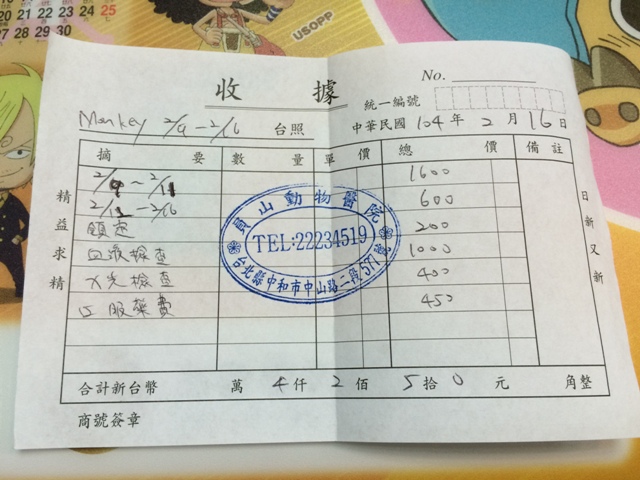 USOPP
18 19 20 21 22 23 24 25
27 28 29 30
收 據
No.
統一編號
Monkey 2/9-2/16 台照
中華民國 104 年 2 月 16 日
摘 要 數 量 單 價 總 價 備 註
2/9~2/11 1600
2/12-2/16 600
鎮定 200
血液檢查 1000
X光檢查 400
口服藥費 450
員山動物醫院
TEL:22234519
台北縣中和市中山路二段577號
精益求精
日新又新
合計新台幣 萬 4 仟 2 佰 5 拾 0 元 角整
商號簽章